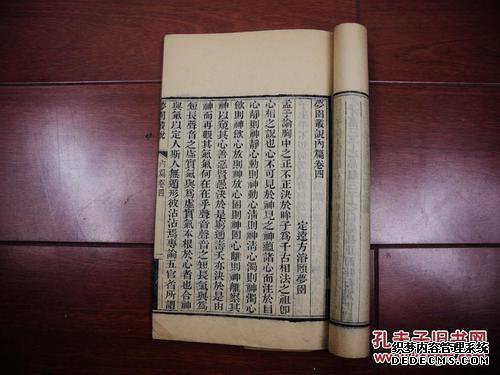 夢園叢說內篇卷四
定遠方濬頤夢園
孟子論胸中之正不正決於眸子爲千古相法之祖卽
心相之說也心不可見於神見之神蘊諸心而注於目
心靜則神靜心動則神動心清則神清心濁則神濁心
斂則神斂心放則神放心固則神固心離則神離察其
神以窺其心善惡賢愚決於是窮通壽夭亦決於是由
神而再觀其氣氣何在在乎聲音聲音之短長氣與爲
短長聲音之虛實氣與爲虛實氣本根於心者也合神
與氣以定人斯人無遁形彼沾沾焉專論五官首所謂
夢園叢說
內篇卷四
孔夫子旧书网
织梦内容管理系统
WWW.KONGFZ.COM